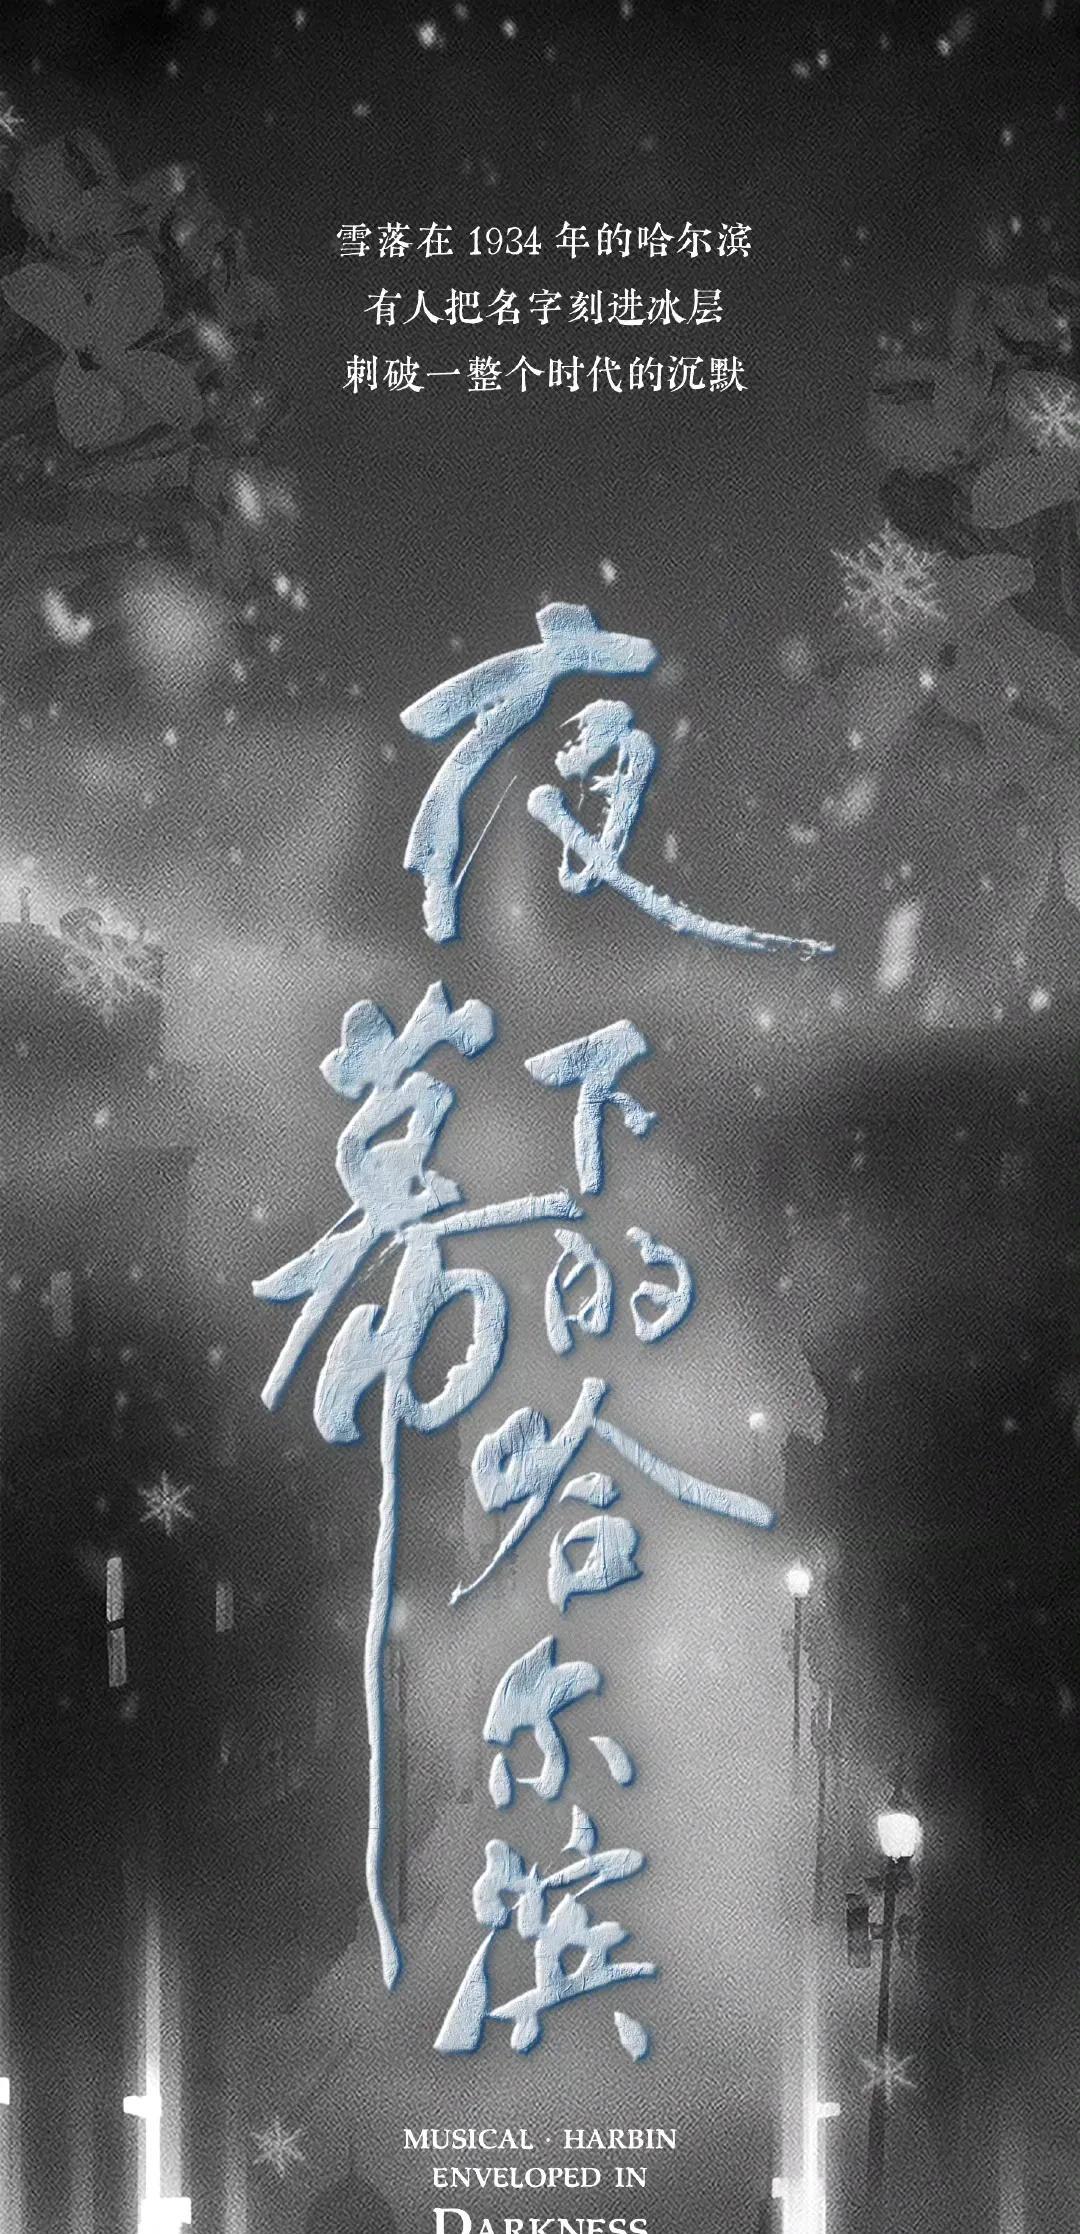 雪落在 1934 年的哈尔滨
有人把名字刻进冰层
刺破一整个时代的沉默
夜幕下的哈尔滨
MUSICAL · HARBIN
ENVELOPED IN
DARKNESS